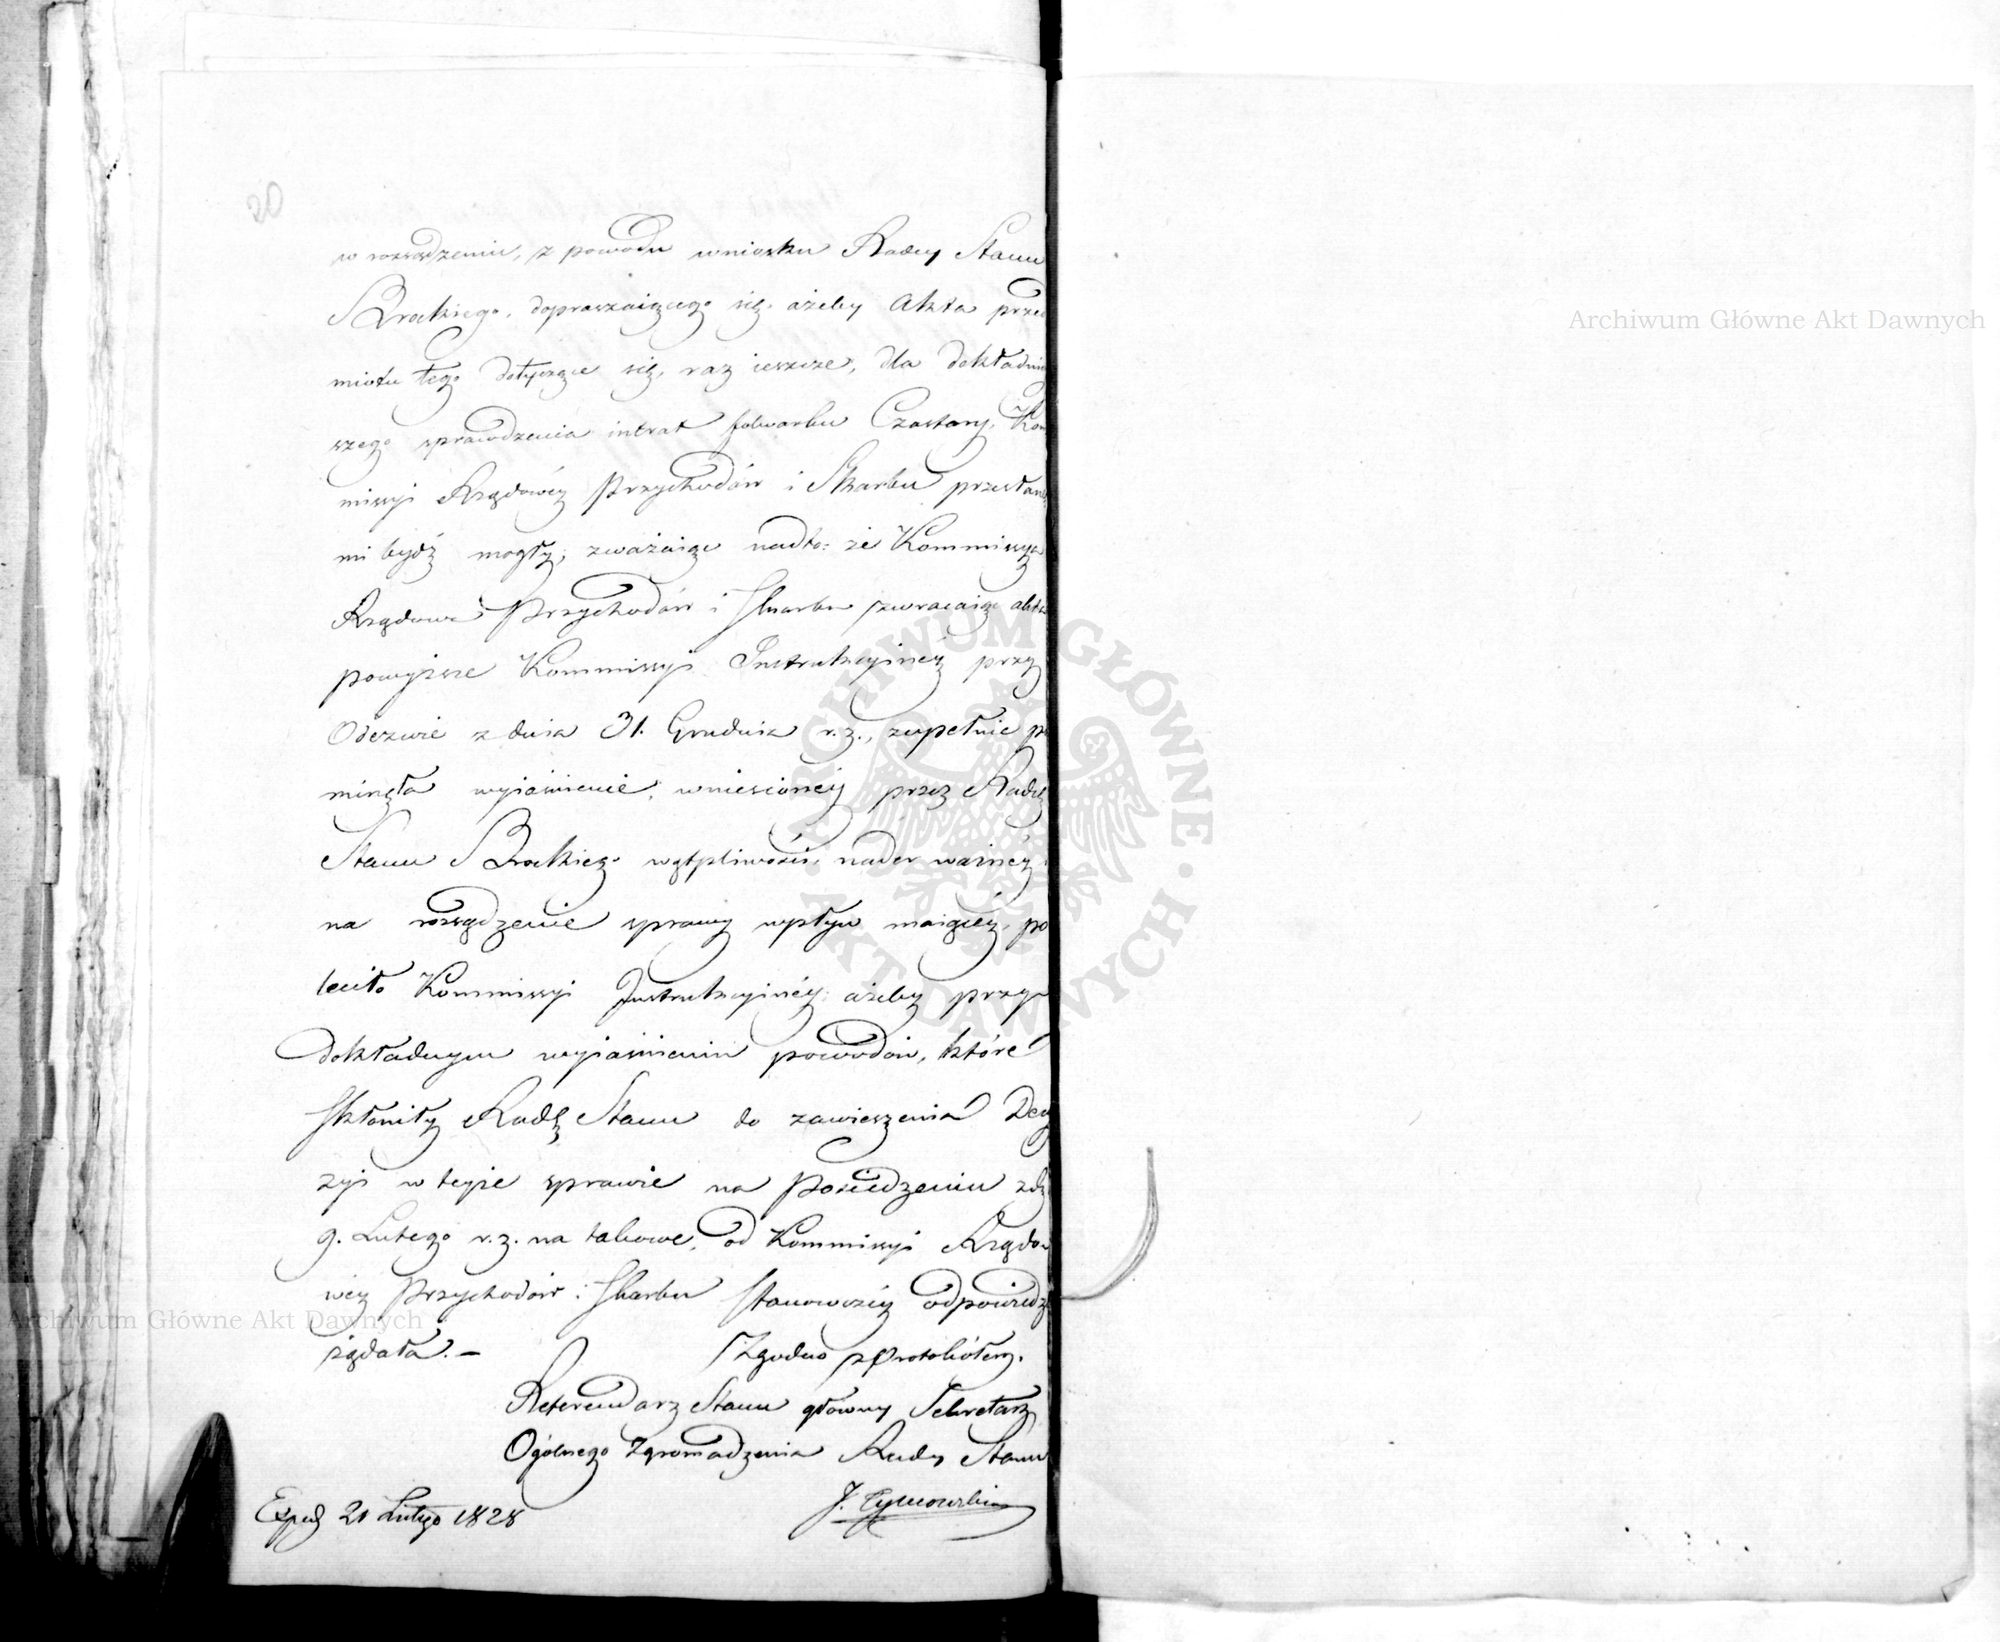 20
w rozsądzeniu, z powodu wniosku Radcy Stanu
Brockiego, dopraszaiącego się, ażeby Akta przed
miotu tego dotyczące się, raz ieszcze, dla dokładniey
szego sprawdzenia intrat folwarku Czastary, Kom
missyi Rządowéy Przychodów i Skarbu przesłane
mi bydź mogły; zważaiąc nadto: że Kommissya
Rządowa Przychodów i Skarbu zwracaiąc akta
powyższe Kommissyi Instrukcyinéy przy
Odezwie z dnia 31. Grudnia r. z., zupełnie po
minęła wyiaśnienie, wniesionéy przez Radcę
Stanu Brockiego wątpliwości, nader ważnéy
na rozsądzenie sprawy wpływ maiącéy, po
leciło Kommissyi Instrukcyinéy; ażeby przy
dokładnym wyiaśnieniu powodów, które
skłoniły Radę Stanu do zawieszenia Decy
zyi w teyże sprawie na Posiedzeniu z d.
9. Lutego r. z. na takowe, od Kommissyi Rządo-
wey Przychodów i Skarbu stanowczéy odpowiedzi
żądała. –
Zgodno z Protokółem.
Referendarz Stanu główny Sekretarz
Ogólnego Zgromadzenia Rady Stanu
J. Tymowski
Exped 21 Lutego 1828
Archiwum Główne Akt Dawnych
Archiwum Główne Akt Dawnych
ARCHIWUM GŁÓWNE · AKT DAWNYCH ·